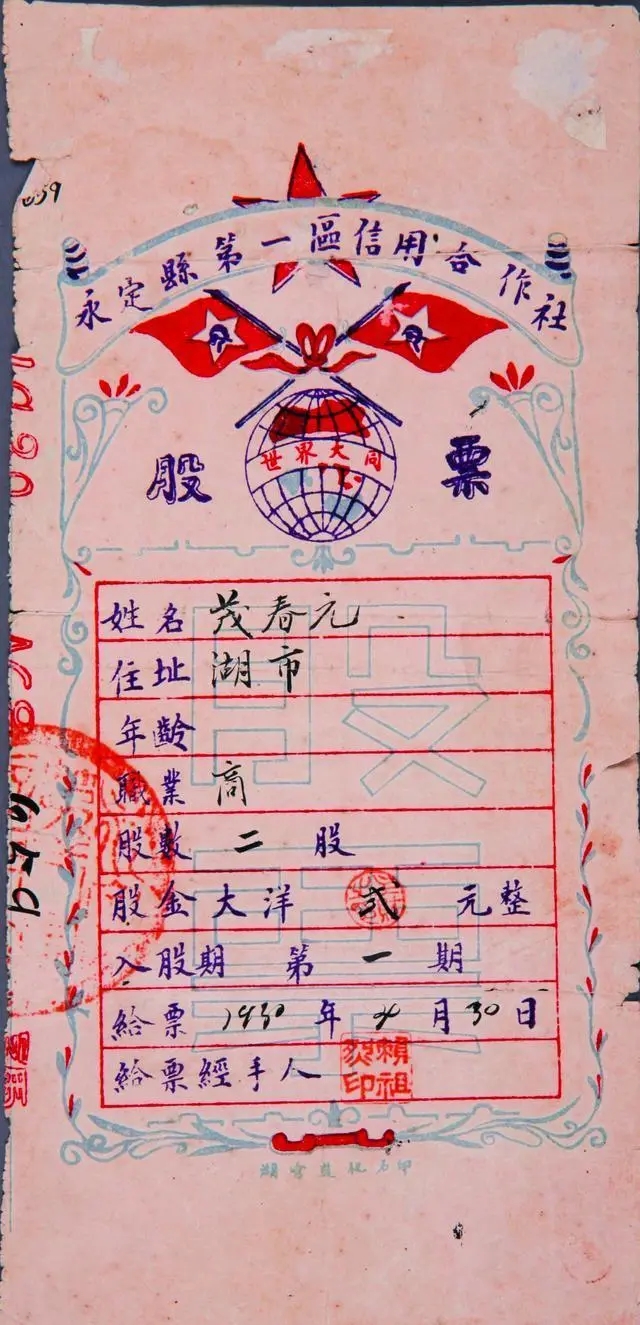 059
永定縣第一區信用合作社
世界大同
股票
姓名 茂春元
住址 湖市
年齡
職業 商
股數 二 股
股金大洋 弍 元整
入股期 第 一 期
給票 1930 年 4 月 30 日
給票經手人 賴祖烈印
股票
No 059